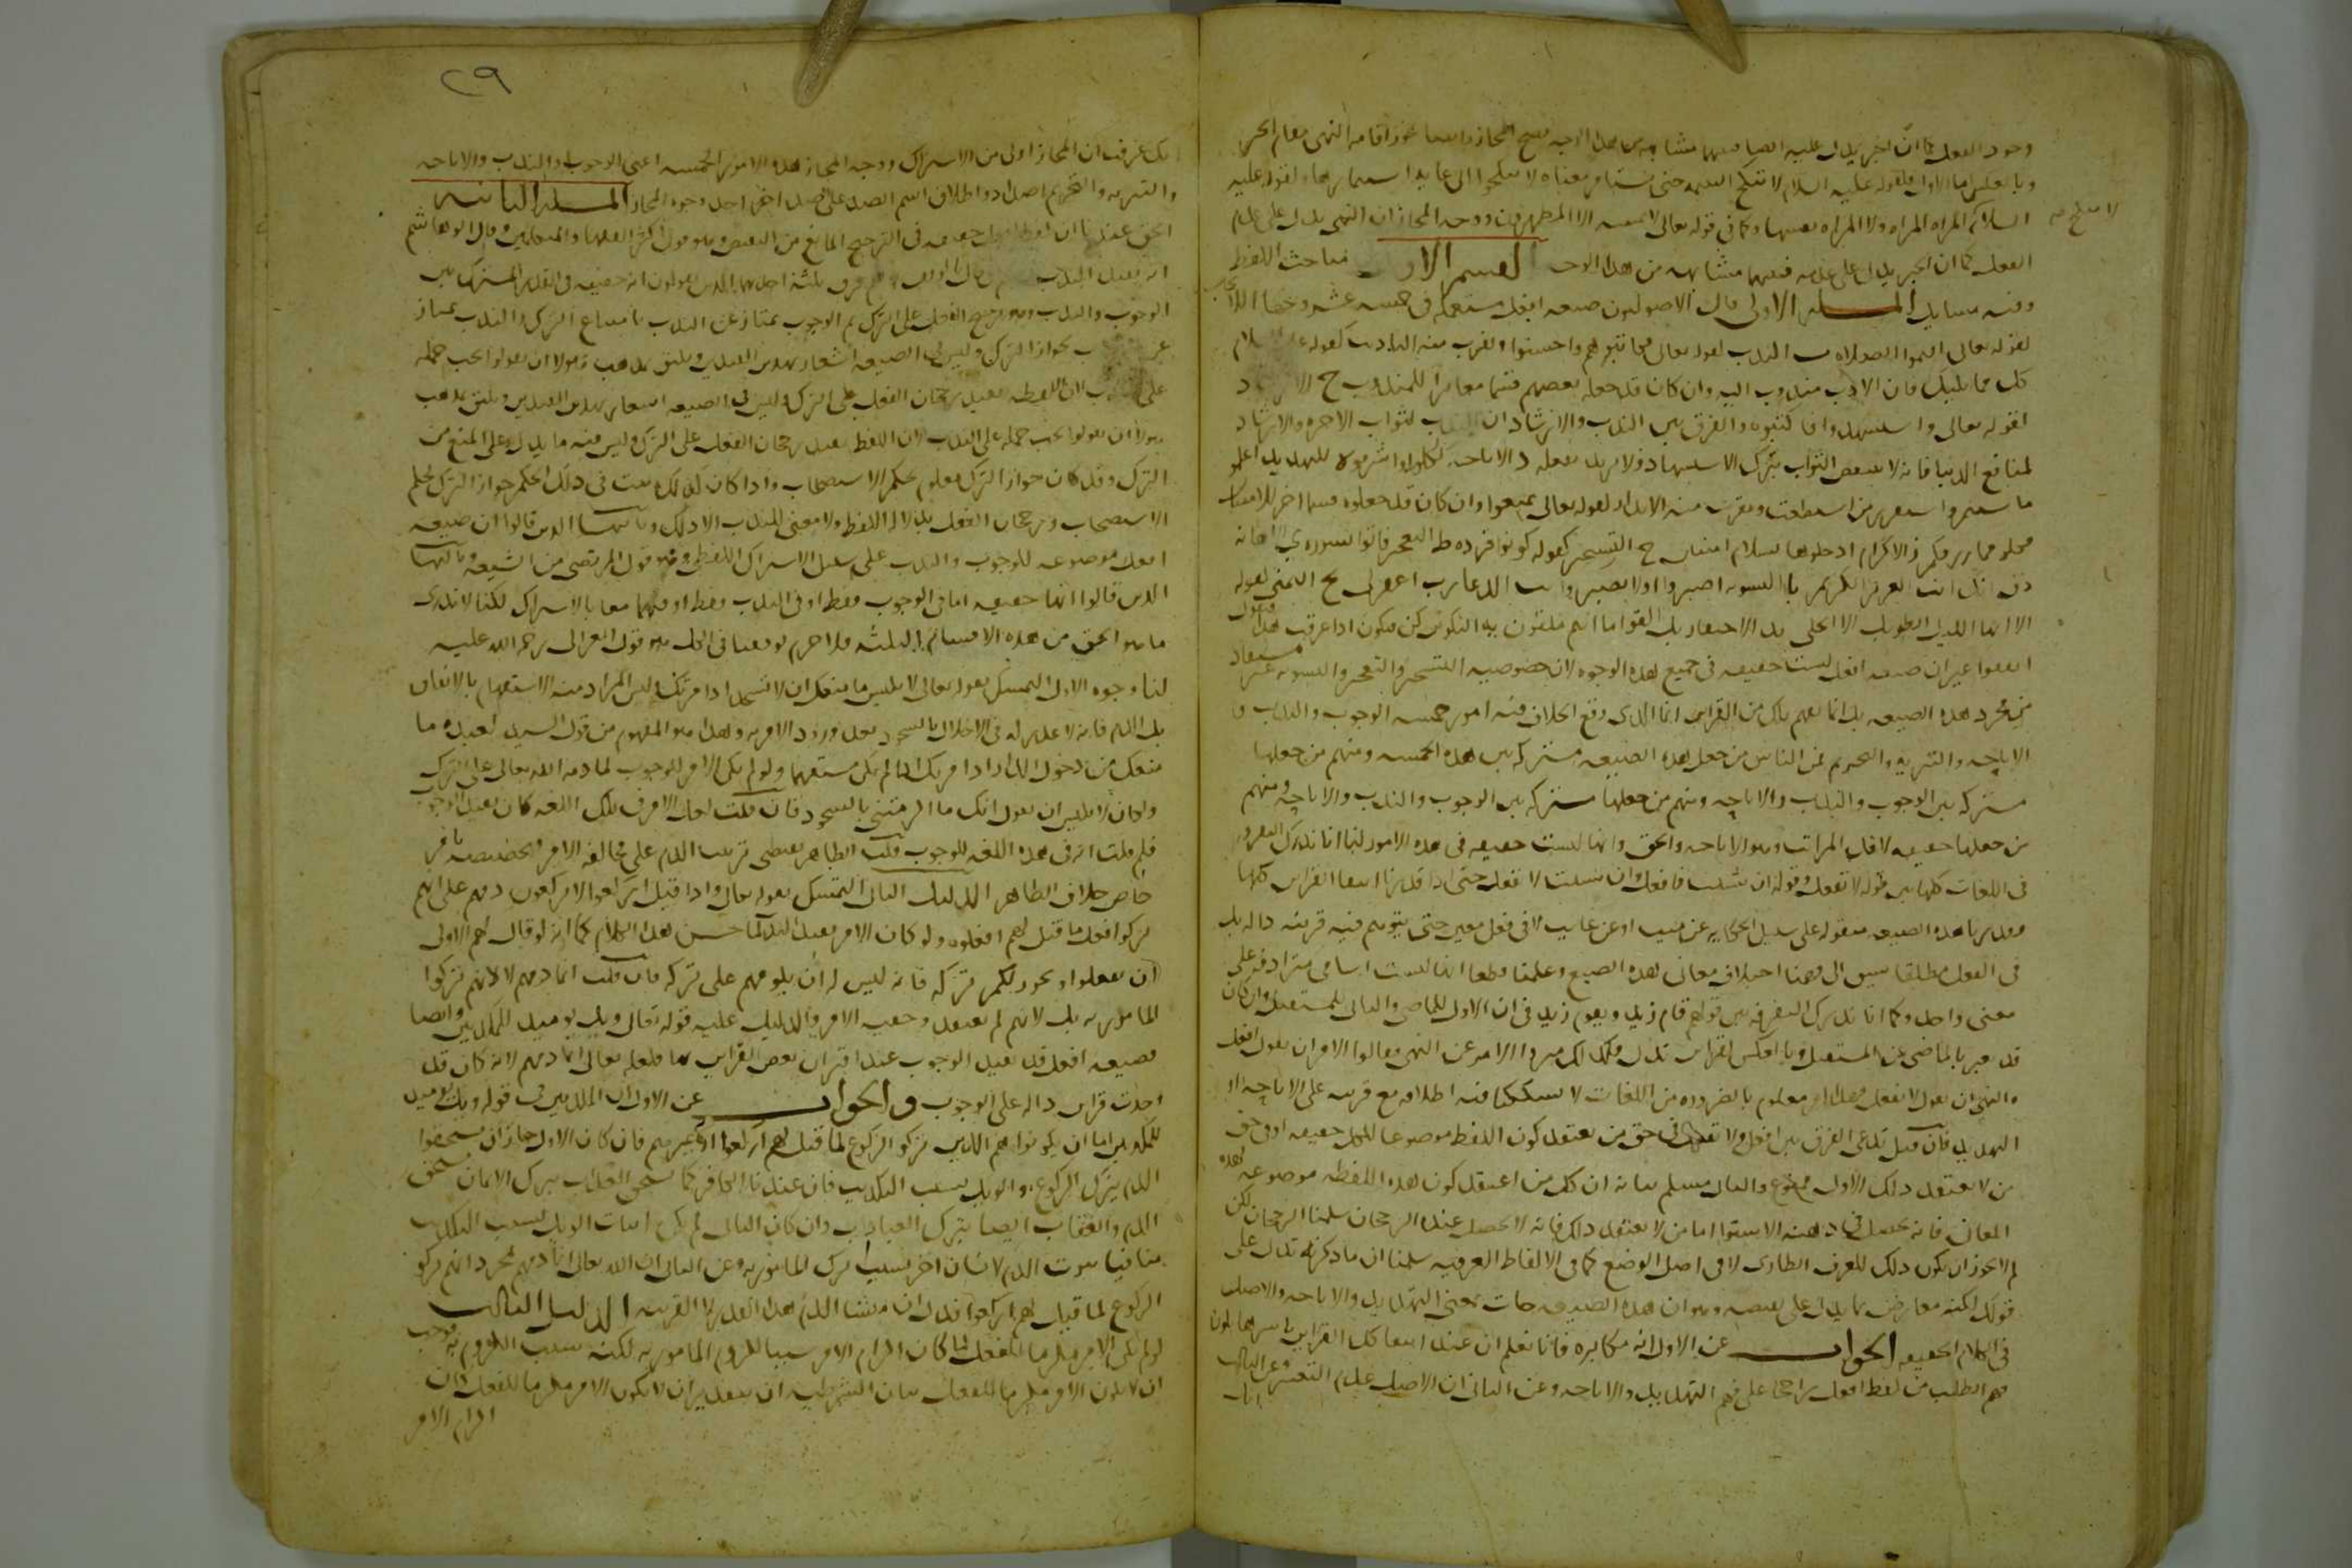 وجود الفعل كما ان الخبر يدل عليه ايضا فبينهما مشابهة من هذا الوجه فصح المجاز وانما جوز اقامة النهي مقام الخبر
وبالعكس اما الاول فلقوله عليه السلام لا تنكح اليتيمة حتى تستامر معناه لا تنكحوا الى غاية استيمارها وقوله عليه
السلام لا تنكح المراة المراة ولا المراة نفسها وكما في قوله تعالى لا يمسه الا المطهرون ووجه المجاز ان النهي يدل على عدم
الفعل كما ان الخبر يدل على عدمه فبينهما مشابهة من هذا الوجه القسم الاول في مباحث اللفظ
وفيه مسايل المسئلة الاولى قال الاصوليون صيغة افعل مستعملة في خمسة عشر وجها الايجاب
كقوله تعالى اقيموا الصلاة ب الندب كقوله تعالى فكاتبوهم واحسنوا ويقرب منه التاديب كقوله عليه السلام
كل مما يليك فان الادب مندوب اليه وان كان قد جعله بعضهم قسما مغايرا للمندوب ج الارشاد
كقوله تعالى واستشهدوا فاكتبوه والفرق بين الندب والارشاد ان الندب لثواب الاخرة والارشاد
لمنافع الدنيا فانه لا ينقص الثواب بترك الاستشهاد ولا يزيد بفعله د الاباحة كلوا واشربوا ه التهديد اعملوا
ما شئتم واستفزز من استطعت ويقرب منه الانذار كقوله تعالى تمتعوا وان كان قد جعلوه قسما اخر و الامتنان
فكلوا مما رزقكم ز الاكرام ادخلوها بسلام امنين ح التسخير كقوله كونوا قردة ط التعجيز فاتوا بسورة ي الاهانة
ذق انك انت العزيز الكريم يا التسوية اصبروا او لا تصبروا يب الدعا رب اغفر لي يج التمني كقوله
الا ايها الليل الطويل الا انجلي يد الاحتقار بل القوا ما انتم ملقون يه التكوين كن فيكون اذا عرفت هذا فنقول
اتفقوا على ان صيغة افعل ليست حقيقة في جميع هذه الوجوه لان خصوصية التسخير والتعجيز والتسوية غير مستفاد
من مجرد هذه الصيغة بل انما يفهم تلك من القراين انما الذي وقع الخلاف فيه امور خمسة الوجوب والندب و
الاباحة والتنزيه والتحريم فمن الناس من جعل هذه الصيغة مشتركة بين هذه الخمسة ومنهم من جعلها
مشتركة بين الوجوب والندب والاباحة ومنهم من جعلها مشتركة بين الوجوب والندب والاباحة ومنهم
من جعلها حقيقة لاقل المراتب وهو الاباحة والحق وانها ليست حقيقة في هذه الامور لنا انا ندرك التفرقة
في اللغات كلها بين قوله لا تفعل وقوله ان شئت فافعل وان شئت لا تفعل حتى اذا قدرنا انتفا القراين كلها
وقدرنا هذه الصيغة منقولة على سبيل الحكاية عن ميت او عن غايب لا في فعل معين حتى يتوهم فيه قرينة دالة بل
في الفعل مطلقا سبق الى فهمنا اختلاف معاني هذه الصيغ وعلمنا قطعا انها ليست اسامي مترادفة على
معنى واحد وكما انا ندرك التفرقة بين قولهم قام زيد ويقوم زيد في ان الاول للماضي والثاني للمستقبل وان كان
قد يعبر بالماضي عن المستقبل وبالعكس لقراين تدل فكذلك ميزوا الامر عن النهي وقالوا الامر ان يقول افعل
والنهي ان يقول لا تفعل وهذا امر معلوم بالضرورة من اللغات لا يشككنا فيه اطلاقه مع قرينة على الاباحة او
التهديد فان قيل تدعي الفرق بين افعل ولا تفعل في حق من يعتقد كون اللفظ موضوعا للكل حقيقة او في حق
من لا يعتقد ذلك الاول ممنوع والثاني مسلم بيانه ان كل من اعتقد كون هذه اللفظة موضوعة لهذه
المعاني فانه يحصل في ذهنه الاستوا اما من لا يعتقد ذلك فانه لا يحصل عنده الرجحان سلمنا الرجحان لكن
لم لا يجوز ان يكون ذلك للعرف الطاري لا في اصل الوضع كما في الالفاظ العرفية سلمنا ان ما ذكرته تدل على
قولك لكنه معارض بما يدل على نقيضه وهو ان هذه الصيغة جات بمعنى التهديد والاباحة والاصل
في الكلام الحقيقة الجواب عن الاول انه مكابرة فانا نعلم ان عند انتفا كل القراين باسرها يكون
فهم الطلب من لفظ افعل راجحا على فهم التهديد والاباحة وعن الثاني ان الاصل عدم التغيير وعن الثالث
انك
لا تنكح المراة
٢٩
انك عرفت ان المجاز اولى من الاشتراك ووجه المجاز هذه الامور الخمسة اعني الوجوب والندب والاباحة
والتنزيه والتحريم اضداد واطلاق اسم الضد على الضد احد وجوه المجاز المسئلة الثانية
الحق عندنا ان لفظ افعل حقيقة في الترجيح المانع من النقيض وهو قول اكثر الفقها والمتكلمين وقال ابو هاشم
انه يفيد الندب فرق ثلثة احدها الذين يقولون انه حقيقة في القدر المشترك بين
الوجوب والندب وهو ترجيح الفعل على الترك ثم الوجوب يمتاز عن الندب بامتناع الترك والندب يمتاز
عن بجواز الترك وليس في الصيغة اشعار بهذين القيدين ويليق بمذهب هولا ان يقولوا يجب حمله
على لان اللفظ يفيد رجحان الفعل على الترك وليس في الصيغة اشعار بهذين القيدين ويليق بمذهب
هولا ان يقولوا يجب حمله على الندب لان اللفظ يفيد رجحان الفعل على الترك وليس فيه ما يدل على المنع من
الترك وقد كان جواز الترك معلوم بحكم الاستصحاب واذا كان كذلك يثبت في ذلك الحكم جواز الترك بحكم
الاستصحاب ورجحان الفعل بدلالة اللفظ ولا معنى للندب الا ذلك وثانيها الذين قالوا ان صيغة
افعل موضوعة للوجوب والندب على سبيل الاشتراك اللفظي وهو قول المرتضى من الشيعة وثالثها
الذين قالوا انها حقيقة اما في الوجوب فقط او في الندب فقط او فيهما معا بالاشتراك لكنا لا ندري
ما هو الحق من هذه الاقسام الثلثة فلا جرم توقفنا في الكل وهو قول الغزالي رحمة الله عليه
لنا وجوه الاول التمسك بقوله تعالى لابليس ما منعك ان لا تسجد اذ امرتك وليس المراد منه الاستفهام بالاتفاق
بل الذم فانه لا عذر له في الاخلال بالسجود بعد ورود الامر به وهذا هو المفهوم من قول السيد لعبده ما
منعك من دخول الدار اذ امرتك اذا لم يكن مستفهما ولو لم يكن الامر للوجوب لما ذمه الله تعالى على الترك
ولكان لابليس ان يقول انك ما الزمتني بالسجود فان قلت لعل الامر في تلك اللغة كان يفيد الوجوب
فلم قلت انه في هذه اللغة للوجوب قلت الظاهر يقتضي ترتب الذم على مخالفة الامر فتخصيصه بامر
خاص خلاف الظاهر الدليل الثاني التمسك بقوله تعالى واذا قيل لهم اركعوا لا يركعون ذمهم على انهم
تركوا فعل ما قيل لهم افعلوه ولو كان الامر يفيد الندب لما حسن هذا الكلام كما انه لو قال لهم الاولى
ان تفعلوا ويجوز لكم تركه فانه ليس له ان يلومهم على تركه فان قلت انما ذمهم لا لانهم تركوا
المامور به بل لانهم لم يعتقدوا حقية الامر والدليل عليه قوله تعالى ويل يوميذ للمكذبين وايضا
فصيغة افعل قد تفيد الوجوب عند اقتران بعض القراين بها فلعله تعالى انما ذمهم لانه كان قد
وجدت قراين دالة على الوجوب والجواب عن الاول ان المكذبين في قوله ويل يوميذ
للمكذبين اما ان يكونوا هم الذين تركوا الركوع لما قيل لهم اركعوا او غيرهم فان كان الاول جاز ان يستحقوا
الذم بترك الركوع والويل بسبب التكذيب فان عندنا الكافر كما يستحق العذاب بترك الايمان يستحق
الذم والعقاب ايضا بترك العبادات وان كان الثاني لم يكن اثبات الويل بسبب التكذيب
منافيا ثبوت الذم لانسان اخر بسبب ترك المامور به وعن الثاني ان الله تعالى انما ذمهم لمجرد انهم تركوا
الركوع لما قيل لهم اركعوا فدل ان منشا الذم هذا القدر لا القرينة الدليل الثالث
لو لم يكن الامر ملزما للفعل لما كان الزام الامر سببا للزوم المامور به لكنه سبب اللزوم به فوجب
ان يكون الامر ملزما للفعل بيان الشرطية ان بتقدير ان لا يكون الامر ملزما للفعل كان
الزام الامر